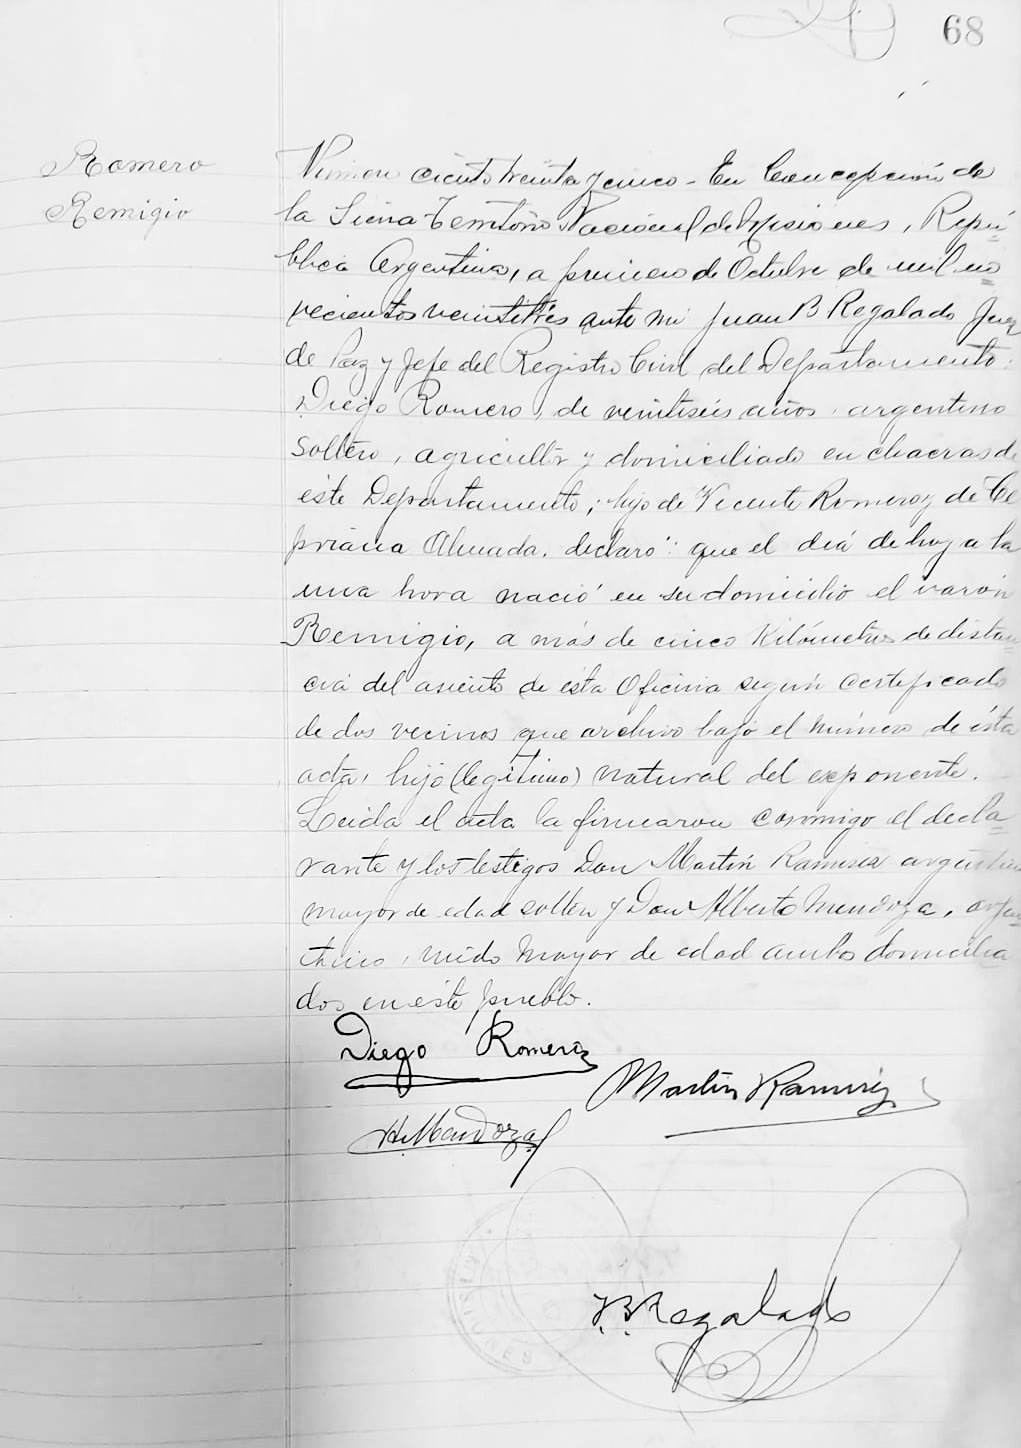 68
Romero
Remigio
Número ciento treinta y cinco - En Concepción de
la Sierra Territorio Nacional de Misiones, Repú=
blica Argentina, a primero de Octubre de mil no=
vecientos veintitrés ante mi Juan B Regalado Juez
de Paz y Jefe del Registro Civil del Departamento:
Diego Romero, de veintiseis años, argentino
soltero, agricultor y domiciliado en chacras de
éste Departamento; hijo de Vicente Romero y de Ci
priana Almada, declaró: que el diá de hoy a la
una hora nació en su domicilio el varón
Remigio, a más de cinco Kilómetros de distan=
cia del asiento de ésta Oficina según certificado
de dos vecinos que archivo bajo el número de ésta
acta, hijo (legítimo) natural del exponente.
Leida el acta la firmaron conmigo el decla=
rante y los testigos Don Martín Ramirez argentino
mayor de edad soltero y Don Alberto Mendoza, argen=
tino, mayor de edad ambos domicilia
dos en éste pueblo.
Diego Romero
Martín Ramirez
A. Mendoza
J. B. Regalado